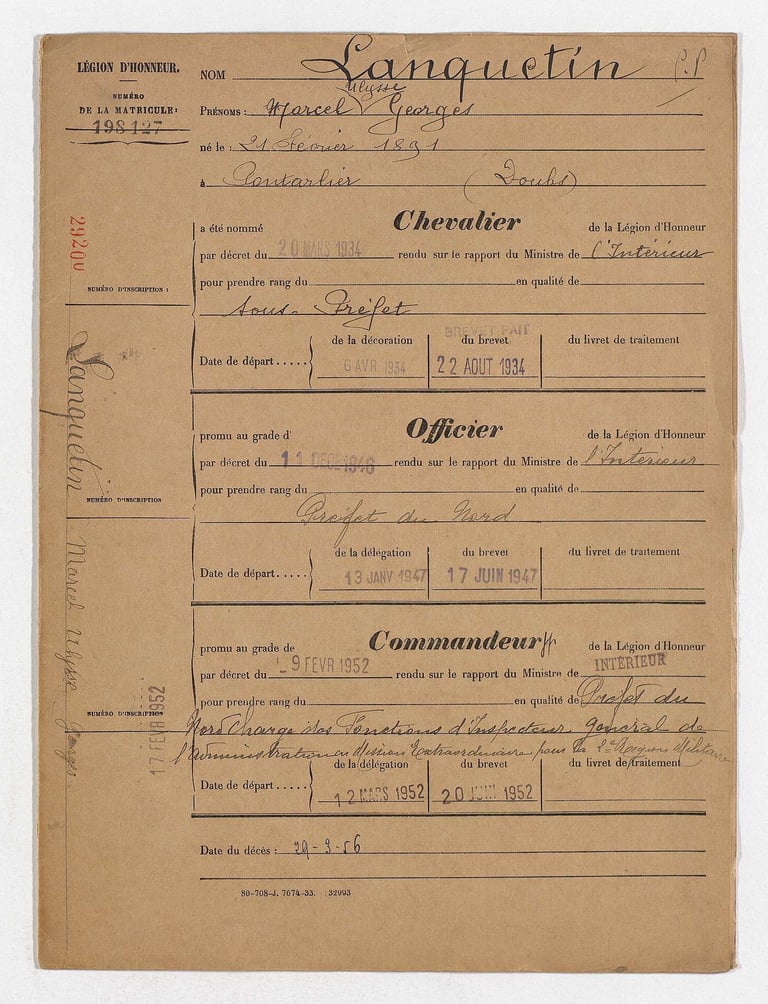 LÉGION D'HONNEUR.
NUMÉRO
DE LA MATRICULE:
198127
29200
NUMÉRO D'INSCRIPTION :
Lanquetin Marcel Ulysse Georges.
NUMÉRO D'INSCRIPTION
NUMÉRO D'INSCRIPTION
17 FEVR 1952
NOM Lanquetin
Ulysse
PRÉNOMS : Marcel Georges
né le : 21 Février 1891
à Pontarlier (Doubs)
a été nommé Chevalier de la Légion d'Honneur
par décret du 20 MARS 1934 rendu sur le rapport du Ministre de l'Intérieur
pour prendre rang du en qualité de
Sous-Préfet
BREVET FAIT
de la décoration du brevet du livret de traitement
Date de départ..... 6 AVR 1934 22 AOUT 1934
promu au grade d' Officier de la Légion d'Honneur
par décret du 11 DECE 1946 rendu sur le rapport du Ministre de l'Intérieur
pour prendre rang du en qualité de
Préfet du Nord
de la délégation du brevet du livret de traitement
Date de départ..... 13 JANV 1947 17 JUIN 1947
promu au grade de Commandeur de la Légion d'Honneur
par décret du 9 FEVR 1952 rendu sur le rapport du Ministre de INTÉRIEUR
pour prendre rang du en qualité de Préfet du
Nord Chargé des Fonctions d'Inspecteur Général de
l'Administration en Mission Extraordinaire pour la 2e Région Militaire
de la délégation du brevet du livret de traitement
Date de départ..... 12 MARS 1952 20 JUIN 1952
Date du décès : 29-3-56
80-708-J. 7674-33. 32993